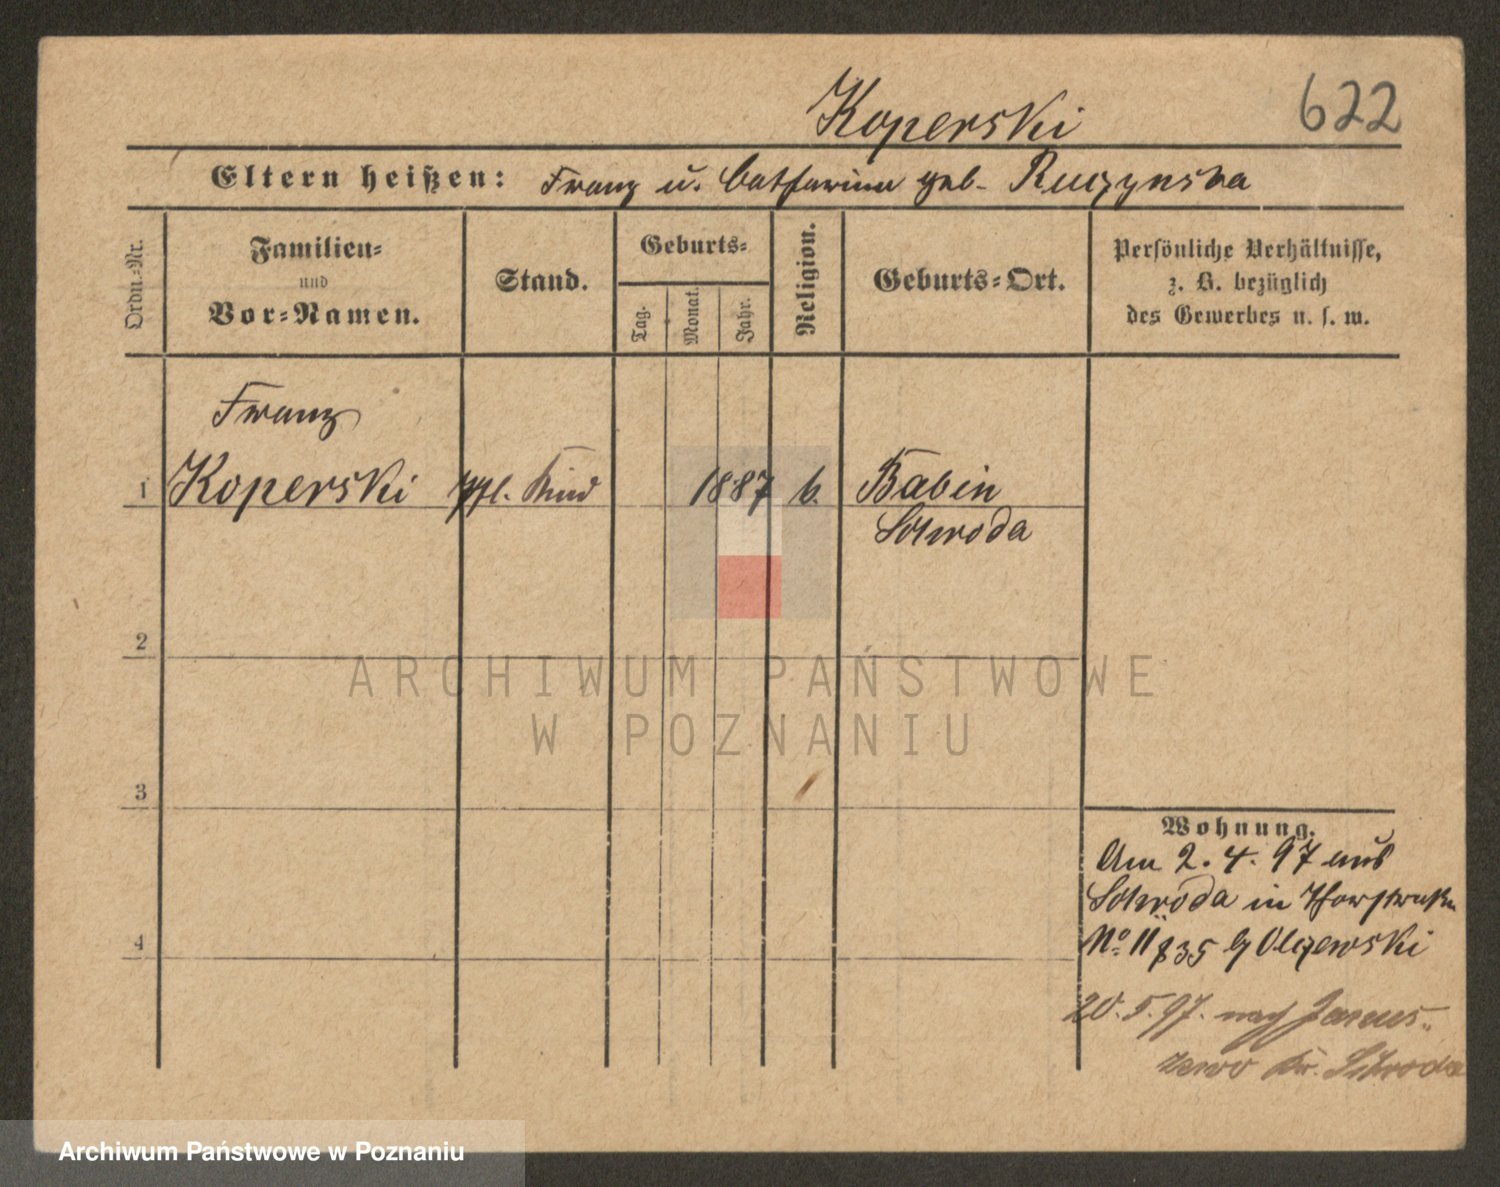 Koperski
622
Eltern heißen: Franz u. Catharina geb. Ruczynska
Ordn.-Nr.
Familien-
und
Vor-Namen.
Stand.
Geburts-
Tag.
Monat.
Jahr.
Religion.
Geburts-Ort.
Persönliche Verhältnisse,
z. B. bezüglich
des Gewerbes u. s. w.
Franz
1 Koperski Kind 1887 Babin
Schroda
2
ARCHIWUM PAŃSTWOWE
W POZNANIU
3
4
Wohnung.
Am 2. 4. 97 aus
Schroda in
No. 11 Olczewski
20. 5. 97. nach Janus-
zewo Kr. Schroda
Archiwum Państwowe w Poznaniu